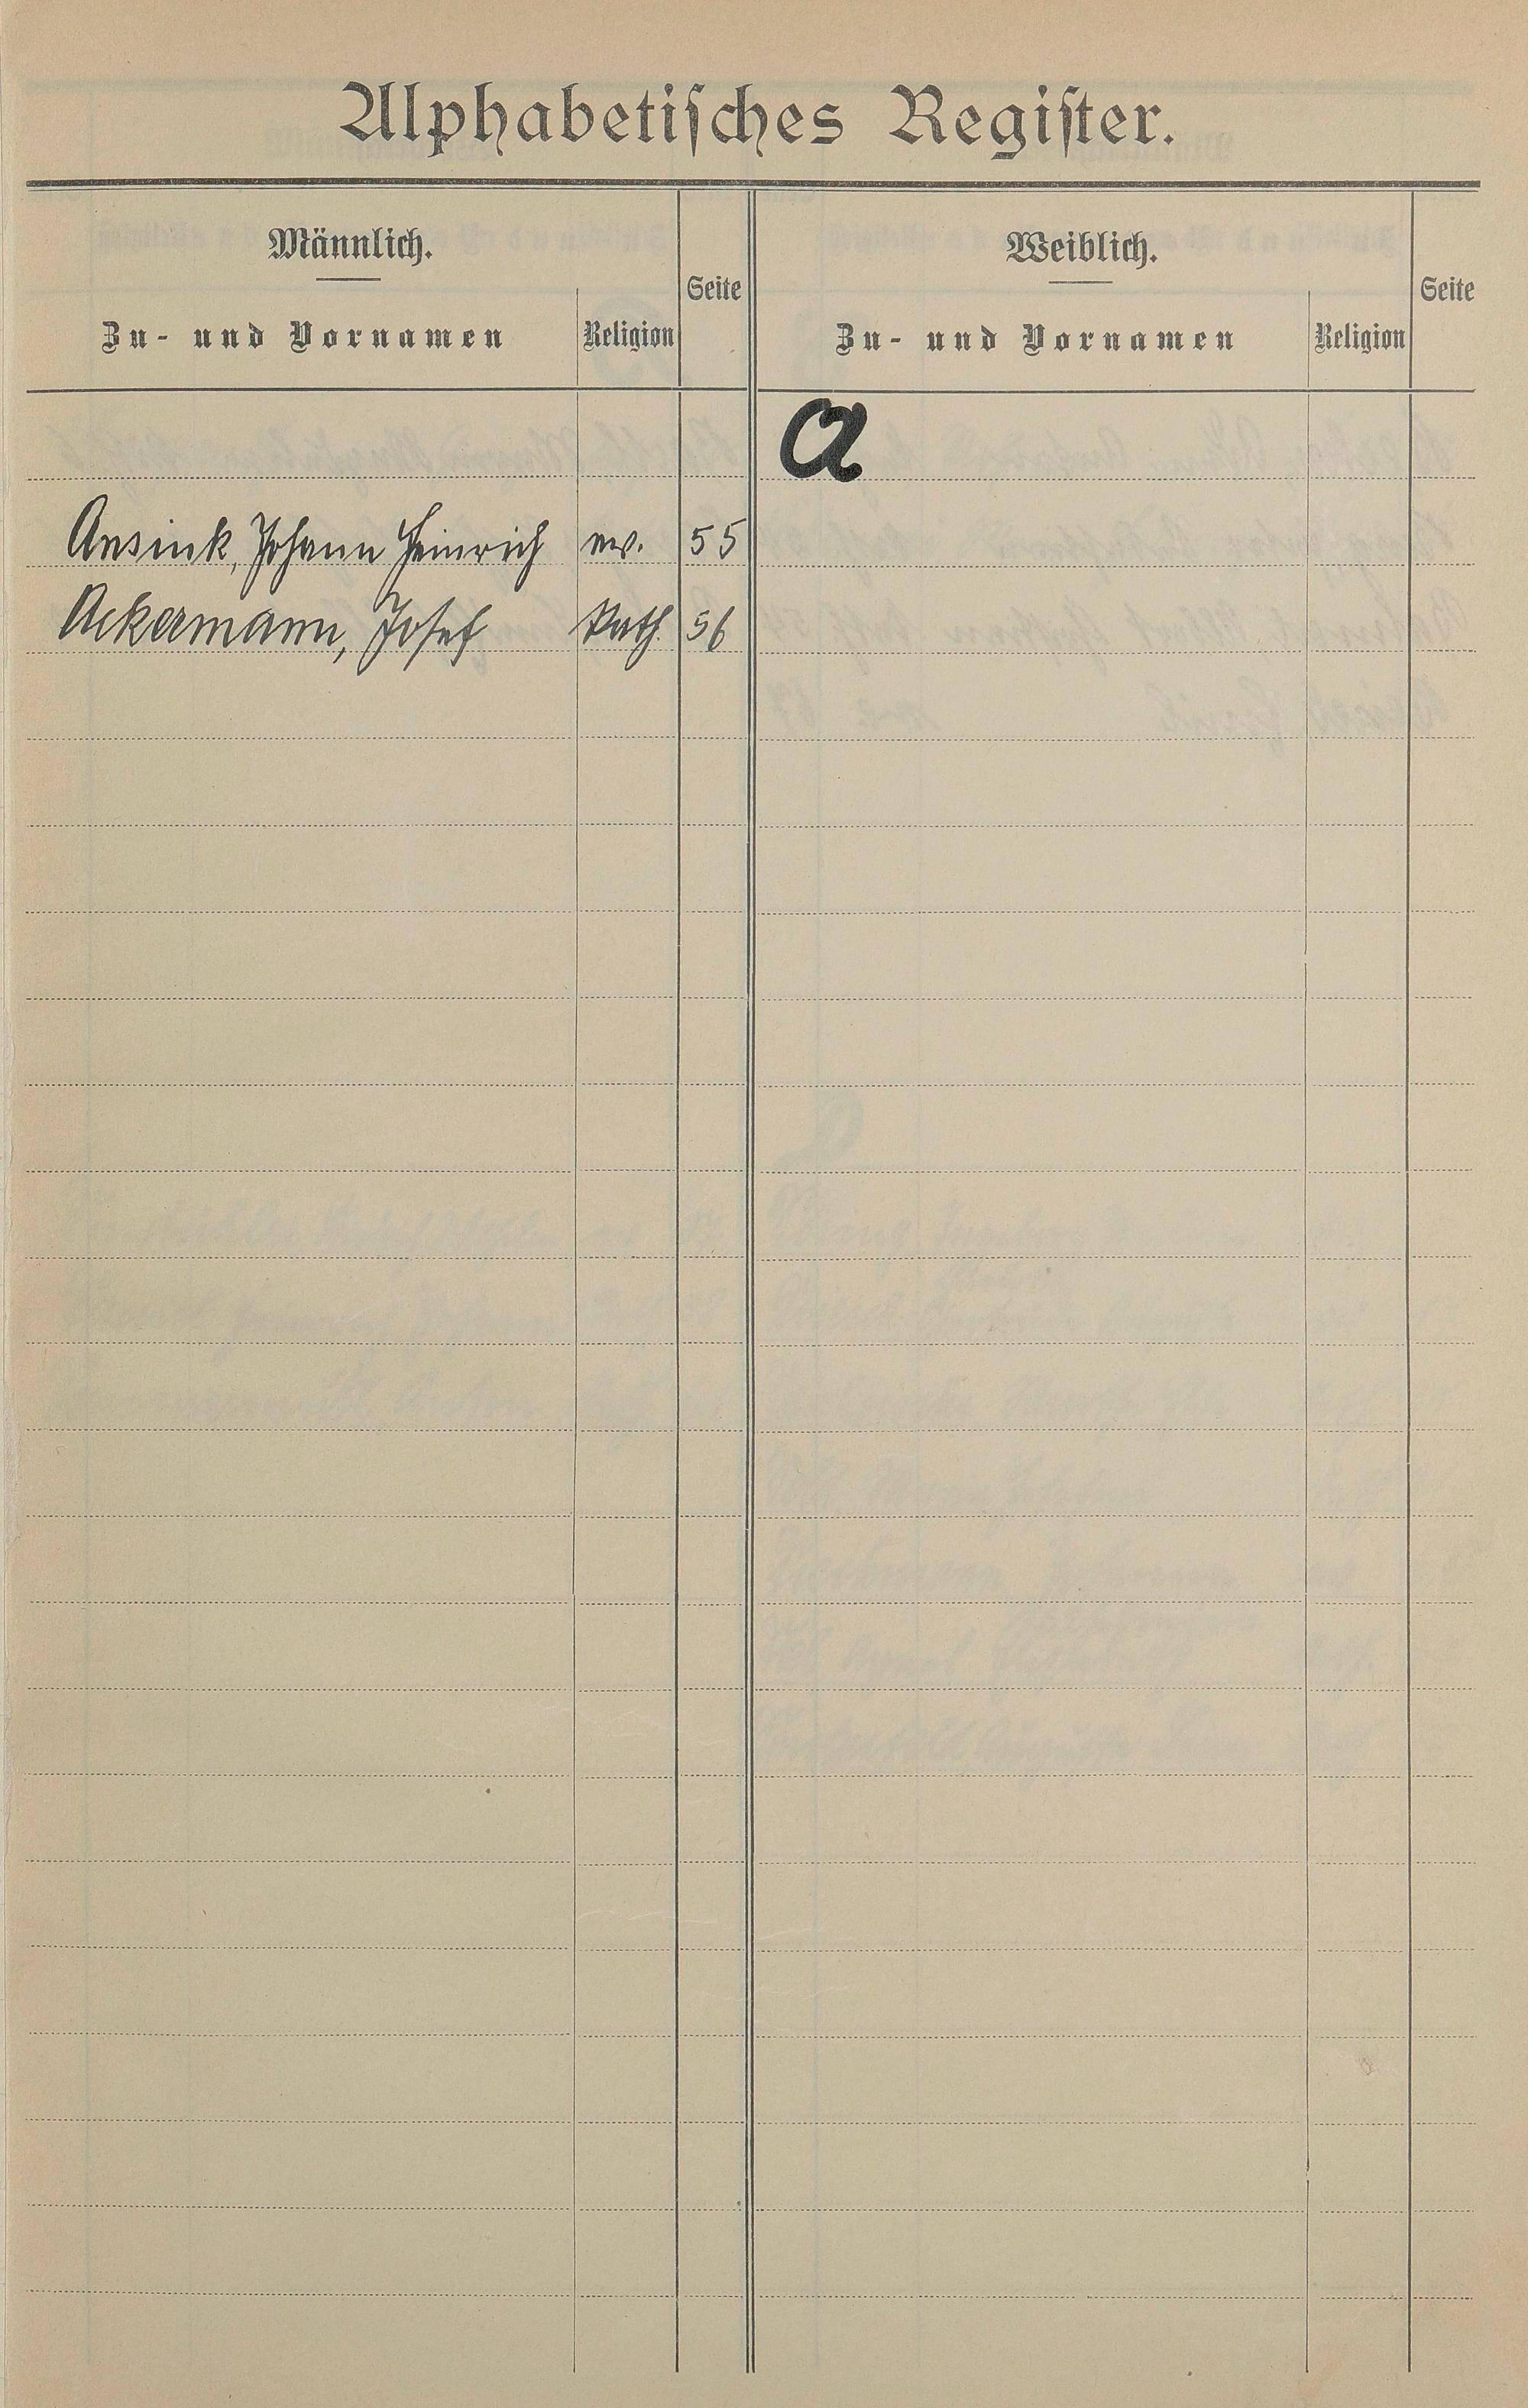 Alphabetiſches Regiſter.
Männlich.
Zu- und Vornamen
Religion
Seite
Weiblich.
Zu- und Vornamen
Religion
Seite
A
Ansink, Johann Heinrich ev. 55
Ackermann, Josef kath. 56